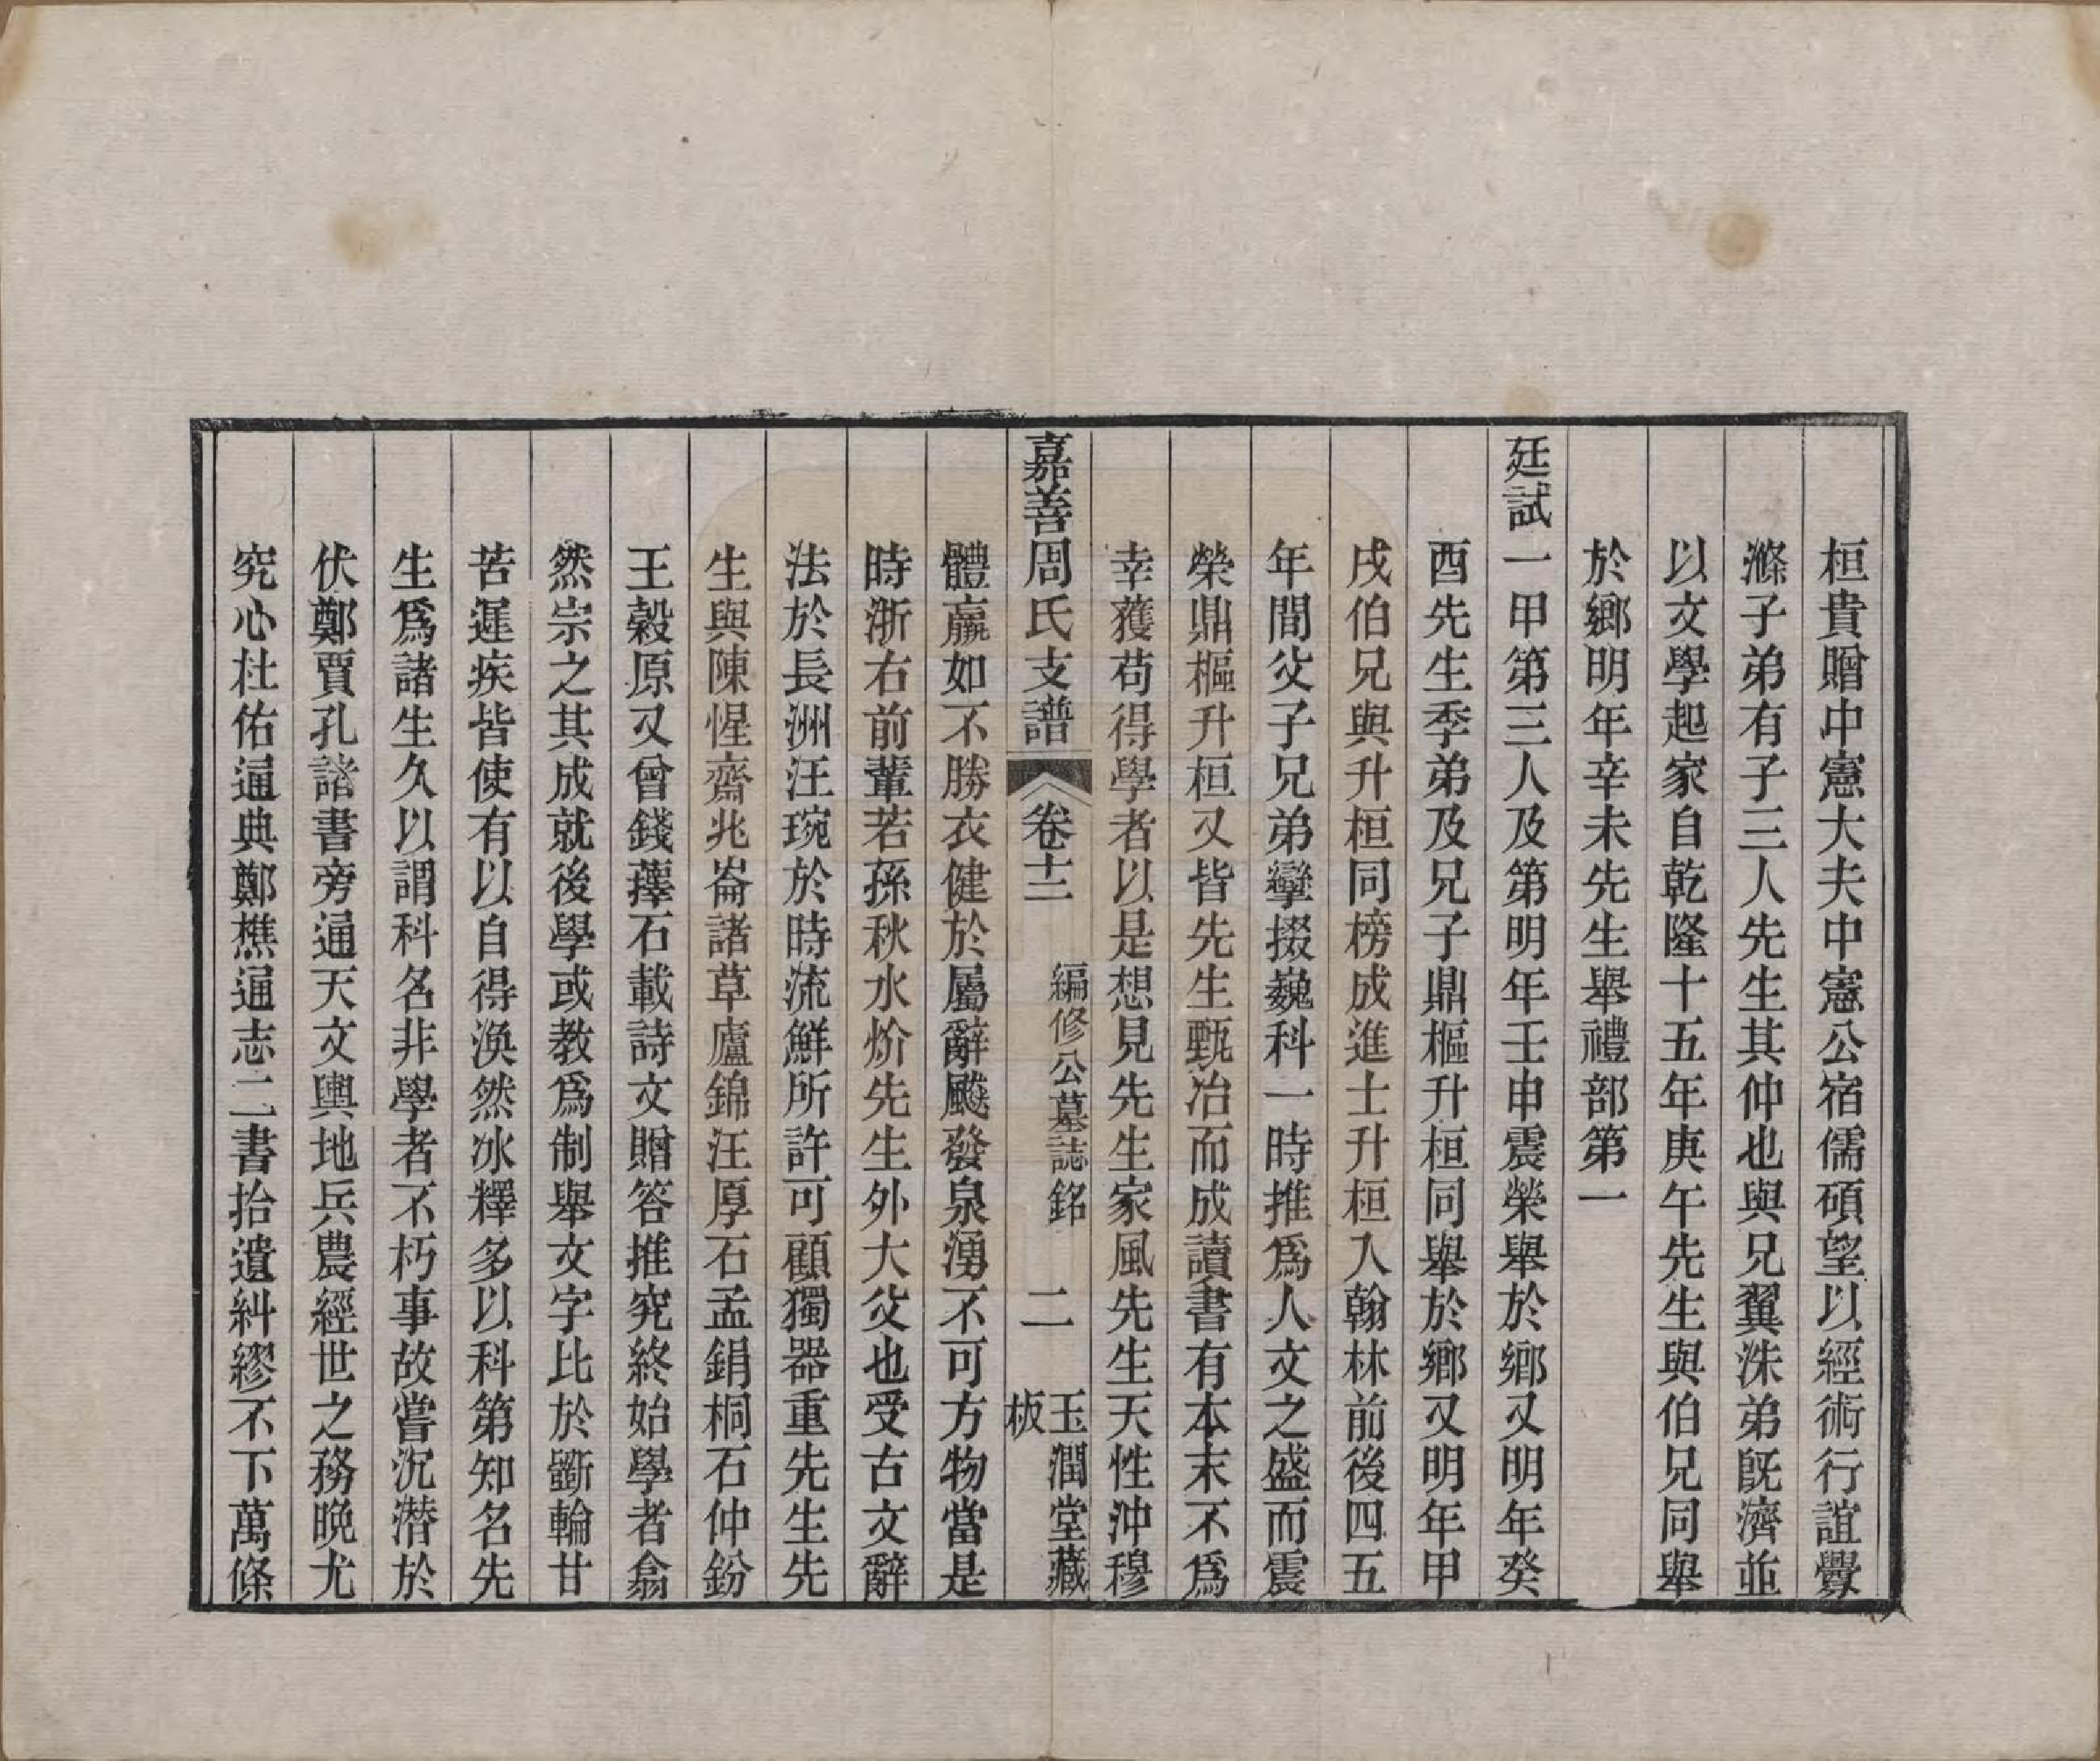 桓貴贈中憲大夫中憲公宿儒碩望以經術行誼黌
滌子弟有子三人先生其仲也與兄翼洙弟旣濟並
以文學起家自乾隆十五年庚午先生與伯兄同舉
於鄉明年辛未先生舉禮部第一
廷試一甲第三人及第明年壬申震榮舉於鄉又明年癸
酉先生季弟及兄子鼎樞升桓同舉於鄉又明年甲
戌伯兄與升桓同榜成進士升桓入翰林前後四五
年間父子兄弟攣掇巍科一時推爲人文之盛而震
榮鼎樞升桓又皆先生甄冶而成讀書有本末不爲
幸獲苟得學者以是想見先生家風先生天性沖穆
嘉善周氏支譜 卷十二 編修公墓誌銘 二 玉潤堂藏板
體羸如不勝衣健於屬辭颷發泉湧不可方物當是
時浙右前輩若孫秋水炌先生外大父也受古文辭
法於長洲汪琬於時流鮮所許可顧獨器重先生先
生與陳惺齋兆崙諸草廬錦汪厚石孟鋗桐石仲鈖
王穀原又曾錢蘀石載詩文贈答推究終始學者翕
然宗之其成就後學或教爲制舉文字比於斲輪甘
苦遲疾皆使有以自得渙然冰釋多以科第知名先
生爲諸生久以謂科名非學者不朽事故嘗沉潛於
伏鄭賈孔諸書旁通天文輿地兵農經世之務晚尤
究心杜佑通典鄭樵通志二書拾遺糾繆不下萬條